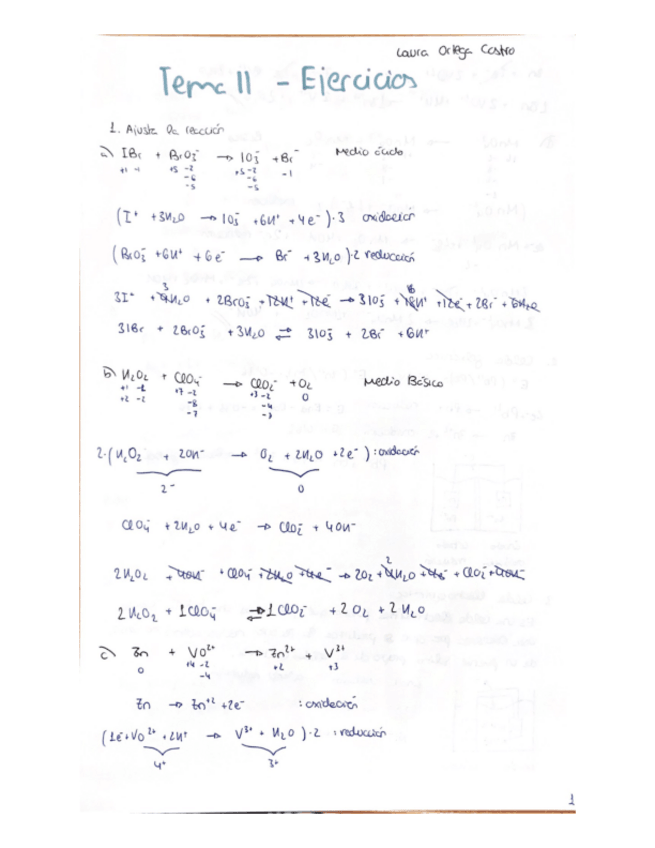 Laura Ortega Castro
Tema 11 - Ejercicios
1. Ajusta la reacción
a) IBr + BrO3⁻ → IO3⁻ + Br⁻ Medio ácido
+1 -1 +5 -2 +5 -2 -1
-6 -6
-5 -5
(I⁺ + 3H2O → IO3⁻ + 6H⁺ + 4e⁻)·3 oxidación
(BrO3⁻ + 6H⁺ + 6e⁻ → Br⁻ + 3H2O)·2 reducción
3I⁺ + 2BrO3⁻ + 12H⁺ + 12e⁻ → 3IO3⁻ + 18H⁺ + 12e⁻ + 2Br⁻ + 6H2O
3IBr + 2BrO3⁻ + 3H2O ⇄ 3IO3⁻ + 2Br⁻ + 6H⁺
b) H2O2 + ClO4⁻ → ClO2⁻ + O2 Medio Básico
+7 -2 +3 -2 0
+2 -2 -8 -4
-7 -3
2·(H2O2 + 2OH⁻ → O2 + 2H2O + 2e⁻) : oxidación
2⁻ 0
ClO4⁻ + 2H2O + 4e⁻ → ClO2⁻ + 4OH⁻
2H2O2 + 4OH⁻ + ClO4⁻ + 2H2O + 4e⁻ → 2O2 + 4H2O + 4e⁻ + ClO2⁻ + 4OH⁻
2H2O2 + 1ClO4⁻ ⇄ 1ClO2⁻ + 2O2 + 2H2O
c) Zn + VO²⁺ → Zn²⁺ + V³⁺
0 +4 -2 +2 +3
-4
Zn → Zn⁺² + 2e⁻ : oxidación
(1e⁻ + VO²⁺ + 2H⁺ → V³⁺ + H2O)·2 : reducción
4⁺ 3⁺
1